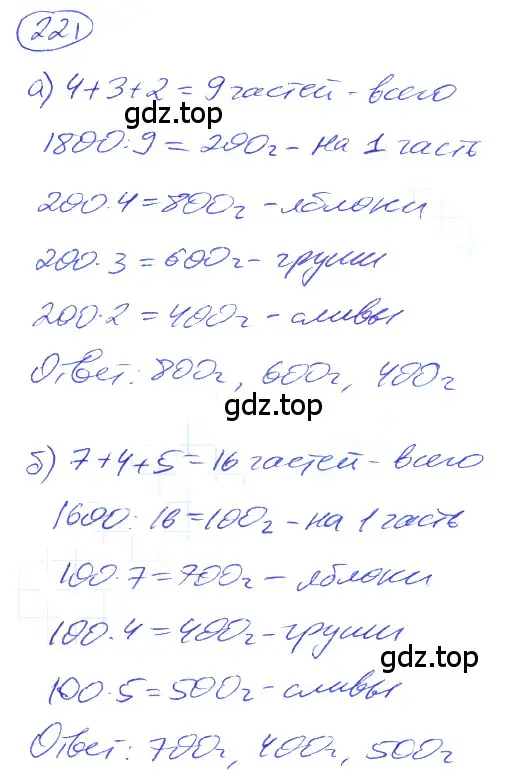 221
а) 4+3+2=9 частей - всего
gdz.top
1800:9=200г - на 1 часть
200·4=800г - яблоки
200·3=600г - груши
200·2=400г - сливы
Ответ: 800г, 600г, 400г
gdz.top
б) 7+4+5=16 частей - всего
1600:16=100г - на 1 часть
100·7=700г - яблоки
100·4=400г - груши
gdz.top
100·5=500г - сливы
Ответ: 700г, 400г, 500г